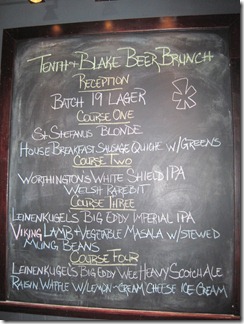 Tenth & Blake Beer Brunch
Reception
Batch 19 Lager
Course One
St. Stefanus Blonde
House Breakfast Sausage Quiche w/Greens
Course Two
Worthington's White Shield IPA
Welsh Rarebit
Course Three
Leinenkugel's Big Eddy Imperial IPA
Viking Lamb + Vegetable Masala w/ Stewed
Mung Beans
Course Four
Leinenkugel's Big Eddy Wee Heavy Scotch Ale
Raisin Waffle w/Lemon-Cream Cheese Ice Cream